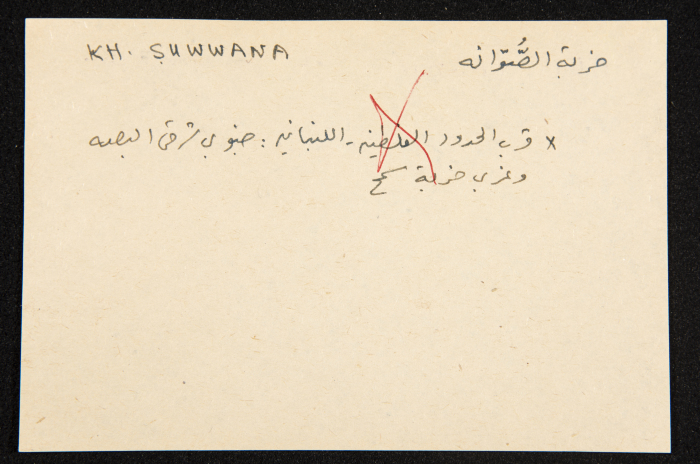 KH. ṢUWWANA
خربة الصُّوّانه
x قرب الحدود الفلسطينيه - اللبنانيه : جنوبي شرقي البصه
وغربي خربة